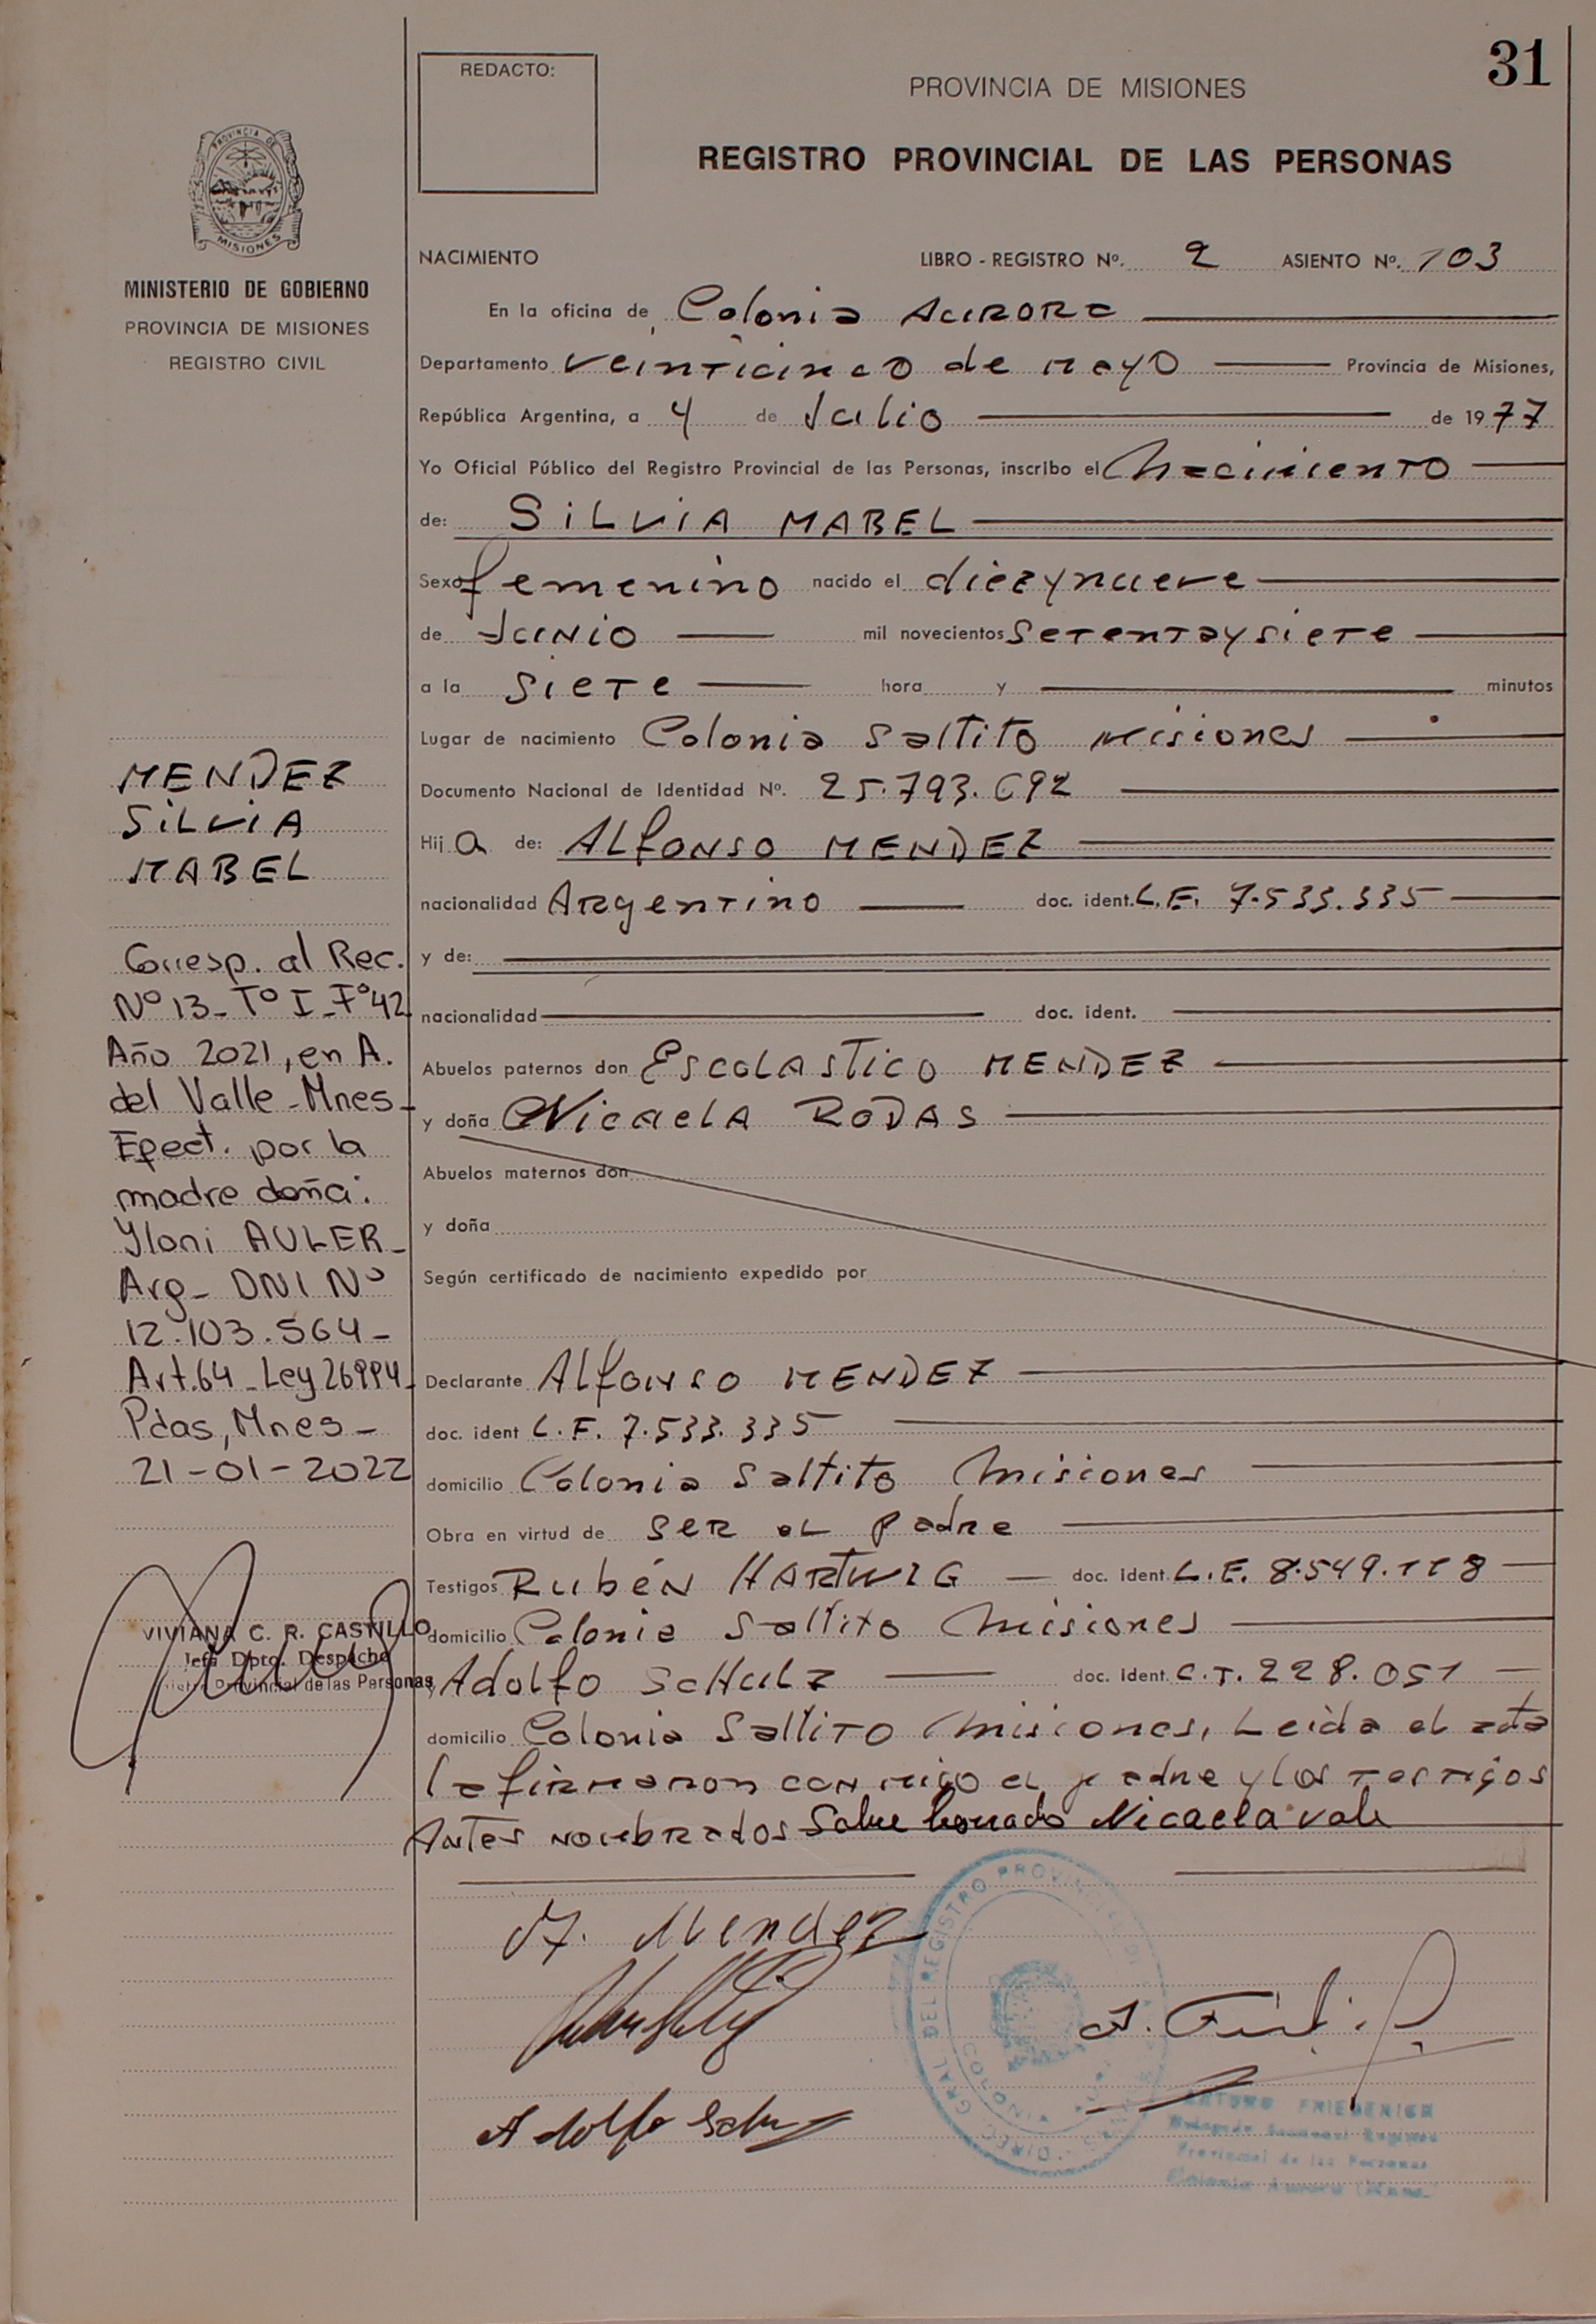 31
REDACTO:
PROVINCIA DE MISIONES
REGISTRO PROVINCIAL DE LAS PERSONAS
PROVINCIA DE
MISIONES
MINISTERIO DE GOBIERNO
PROVINCIA DE MISIONES
REGISTRO CIVIL
NACIMIENTO LIBRO - REGISTRO Nº. 2 ASIENTO Nº. 103
En la oficina de Colonia AURORA
Departamento Veinticinco de Mayo Provincia de Misiones,
República Argentina, a 4 de Julio de 1977
Yo Oficial Público del Registro Provincial de las Personas, inscribo el Nacimiento
de: SILVIA MABEL
Sexo femenino nacido el diezynueve
de Junio mil novecientos Setentaysiete
a la Siete hora y minutos
Lugar de nacimiento Colonia Saltito Misiones
Documento Nacional de Identidad Nº. 25.793.692
Hija de: Alfonso MENDEZ
nacionalidad Argentino doc. ident. L.E. 7.533.335
y de:
nacionalidad doc. ident.
Abuelos paternos don Escolastico MENDEZ
y doña Micaela RODAS
Abuelos maternos don
y doña
Según certificado de nacimiento expedido por
Declarante Alfonso MENDEZ
doc. ident L.E. 7.533.335
domicilio Colonia Saltito Misiones
Obra en virtud de ser el padre
Testigos Rubén HARTWIG doc. ident. L.E. 8.549.118
domicilio Colonia Saltito Misiones
y Adolfo Schulz doc. ident. C.I. 228.051
domicilio Colonia Saltito Misiones, Leida el acta
la firmaron conmigo el padre y los testigos
Antes nombrados Sobre borrado Micaela vale
MENDEZ
SILVIA
MABEL
Corresp. al Rec.
Nº 13_Tº I_Fº 42
Año 2021, en A.
del Valle_Mnes_
Efect. por la
madre doña:
Yloni AULER_
Arg_ DNI Nº
12.103.564_
Art.64_Ley 26994_
Pdas, Mnes_
21-01-2022
VIVIANA C. R. CASTILLO
Jefa Dpto. Despacho
Provincial de las Personas
A. Mendez
Adolfo
DIREC. GRAL. DEL REGISTRO PROVINCIAL DE
ARTURO FRIEDERICH
Provincial de las Personas